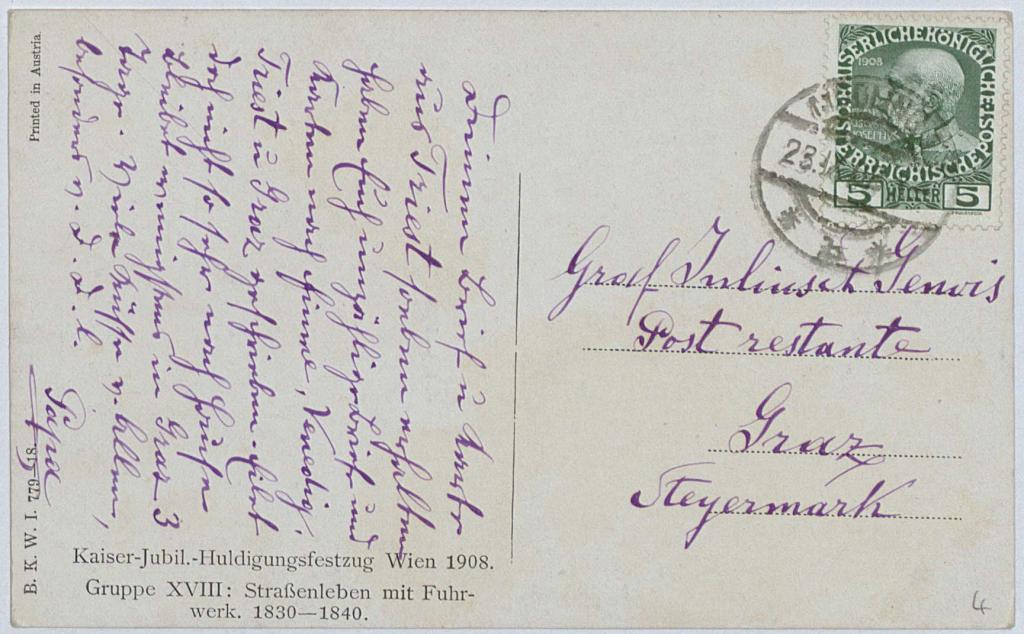 Printed in Austria.
B. K. W. I. 779—18.
Deinen Brief u Karte
aus Triest soeben erhalten
haben Euch unzählige Briefe und
Karten nach Fiume, Venedig,
Triest u Graz geschrieben. Eilet
doch nicht so sehr nach Hause
bleibet wenigstens in Graz 3
Tage. Viele Küsse v. allen,
besonders v. D. D. l.
Papa
Kaiser-Jubil.-Huldigungsfestzug Wien 1908.
Gruppe XVIII: Straßenleben mit Fuhr-
werk. 1830—1840.
KAISERLICHE KÖNIGLICHE
ÖSTERREICHISCHE POST
1908
5 HELLER 5
Graf
Post restante
Graz
Steyermark
4